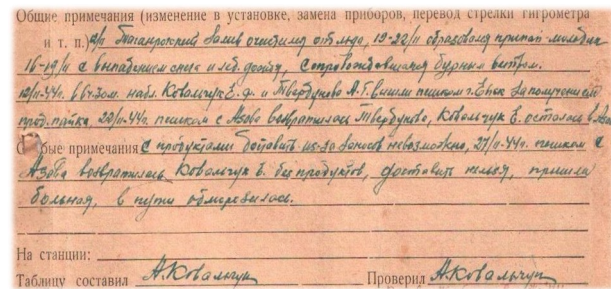 Общие примечания (изменение в установке, замена приборов, перевод стрелки гигрометра
и т. п.) 2/II Таганрогский Залив очистился от льда, 19-22/II образовался припай молодик
16-19/II с выпадением снега и лед. дождя, сопровождавшихся бурным ветром.
12/II-44г. в 6ч. набл. Ковальчук Е. и Твердунова А.Г. вышли пешком г. Ейск за получением
прод. пайка, 22/II-44г. пешком с Азова возвратилась Твердунова, Ковальчук Е. осталась в
Особые примечания с продуктами доставить из-за заносов невозможно, 27/II-44г. пешком с
Азова возвратилась Ковальчук Е. без продуктов, доставить нельзя, пришла
больная, в пути обморозилась.
На станции:
Таблицу составил А.Ковальчук Проверил А.Ковальчук